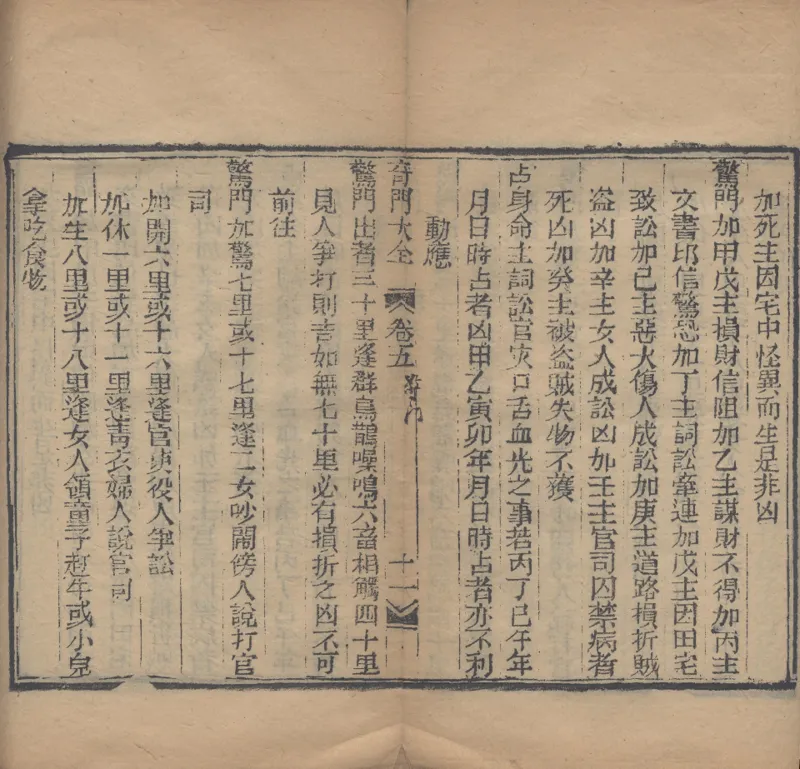 加死主因宅中怪異而生是非凶
驚門加甲戊主損財信阻加乙主謀財不得加丙主
文書印信驚恐加丁主詞訟牽連加戊主因田宅
致訟加己主惡犬傷人成訟加庚主道路損折賊
盗凶加辛主女人成訟凶加壬主官司囚禁病者
死凶加癸主被盗賊失物不獲
占身命主詞訟官灾口舌血光之事若丙丁巳午年
月日時占者凶甲乙寅卯年月日時占者亦不利
動應
奇門大全 卷五 十一
驚門出者三十里逢群鳥鵲噪鳴六畜相觸四十里
見人爭打則吉如無七十里必有損折之凶不可
前往
驚門加驚七里或十七里逢二女吵鬧傍人說打官
司
加開六里或十六里逢官吏役人爭訟
加休一里或十一里逢青衣婦人說官司
加生八里或十八里逢女人領童子赶牛或小兒
拿吃食物